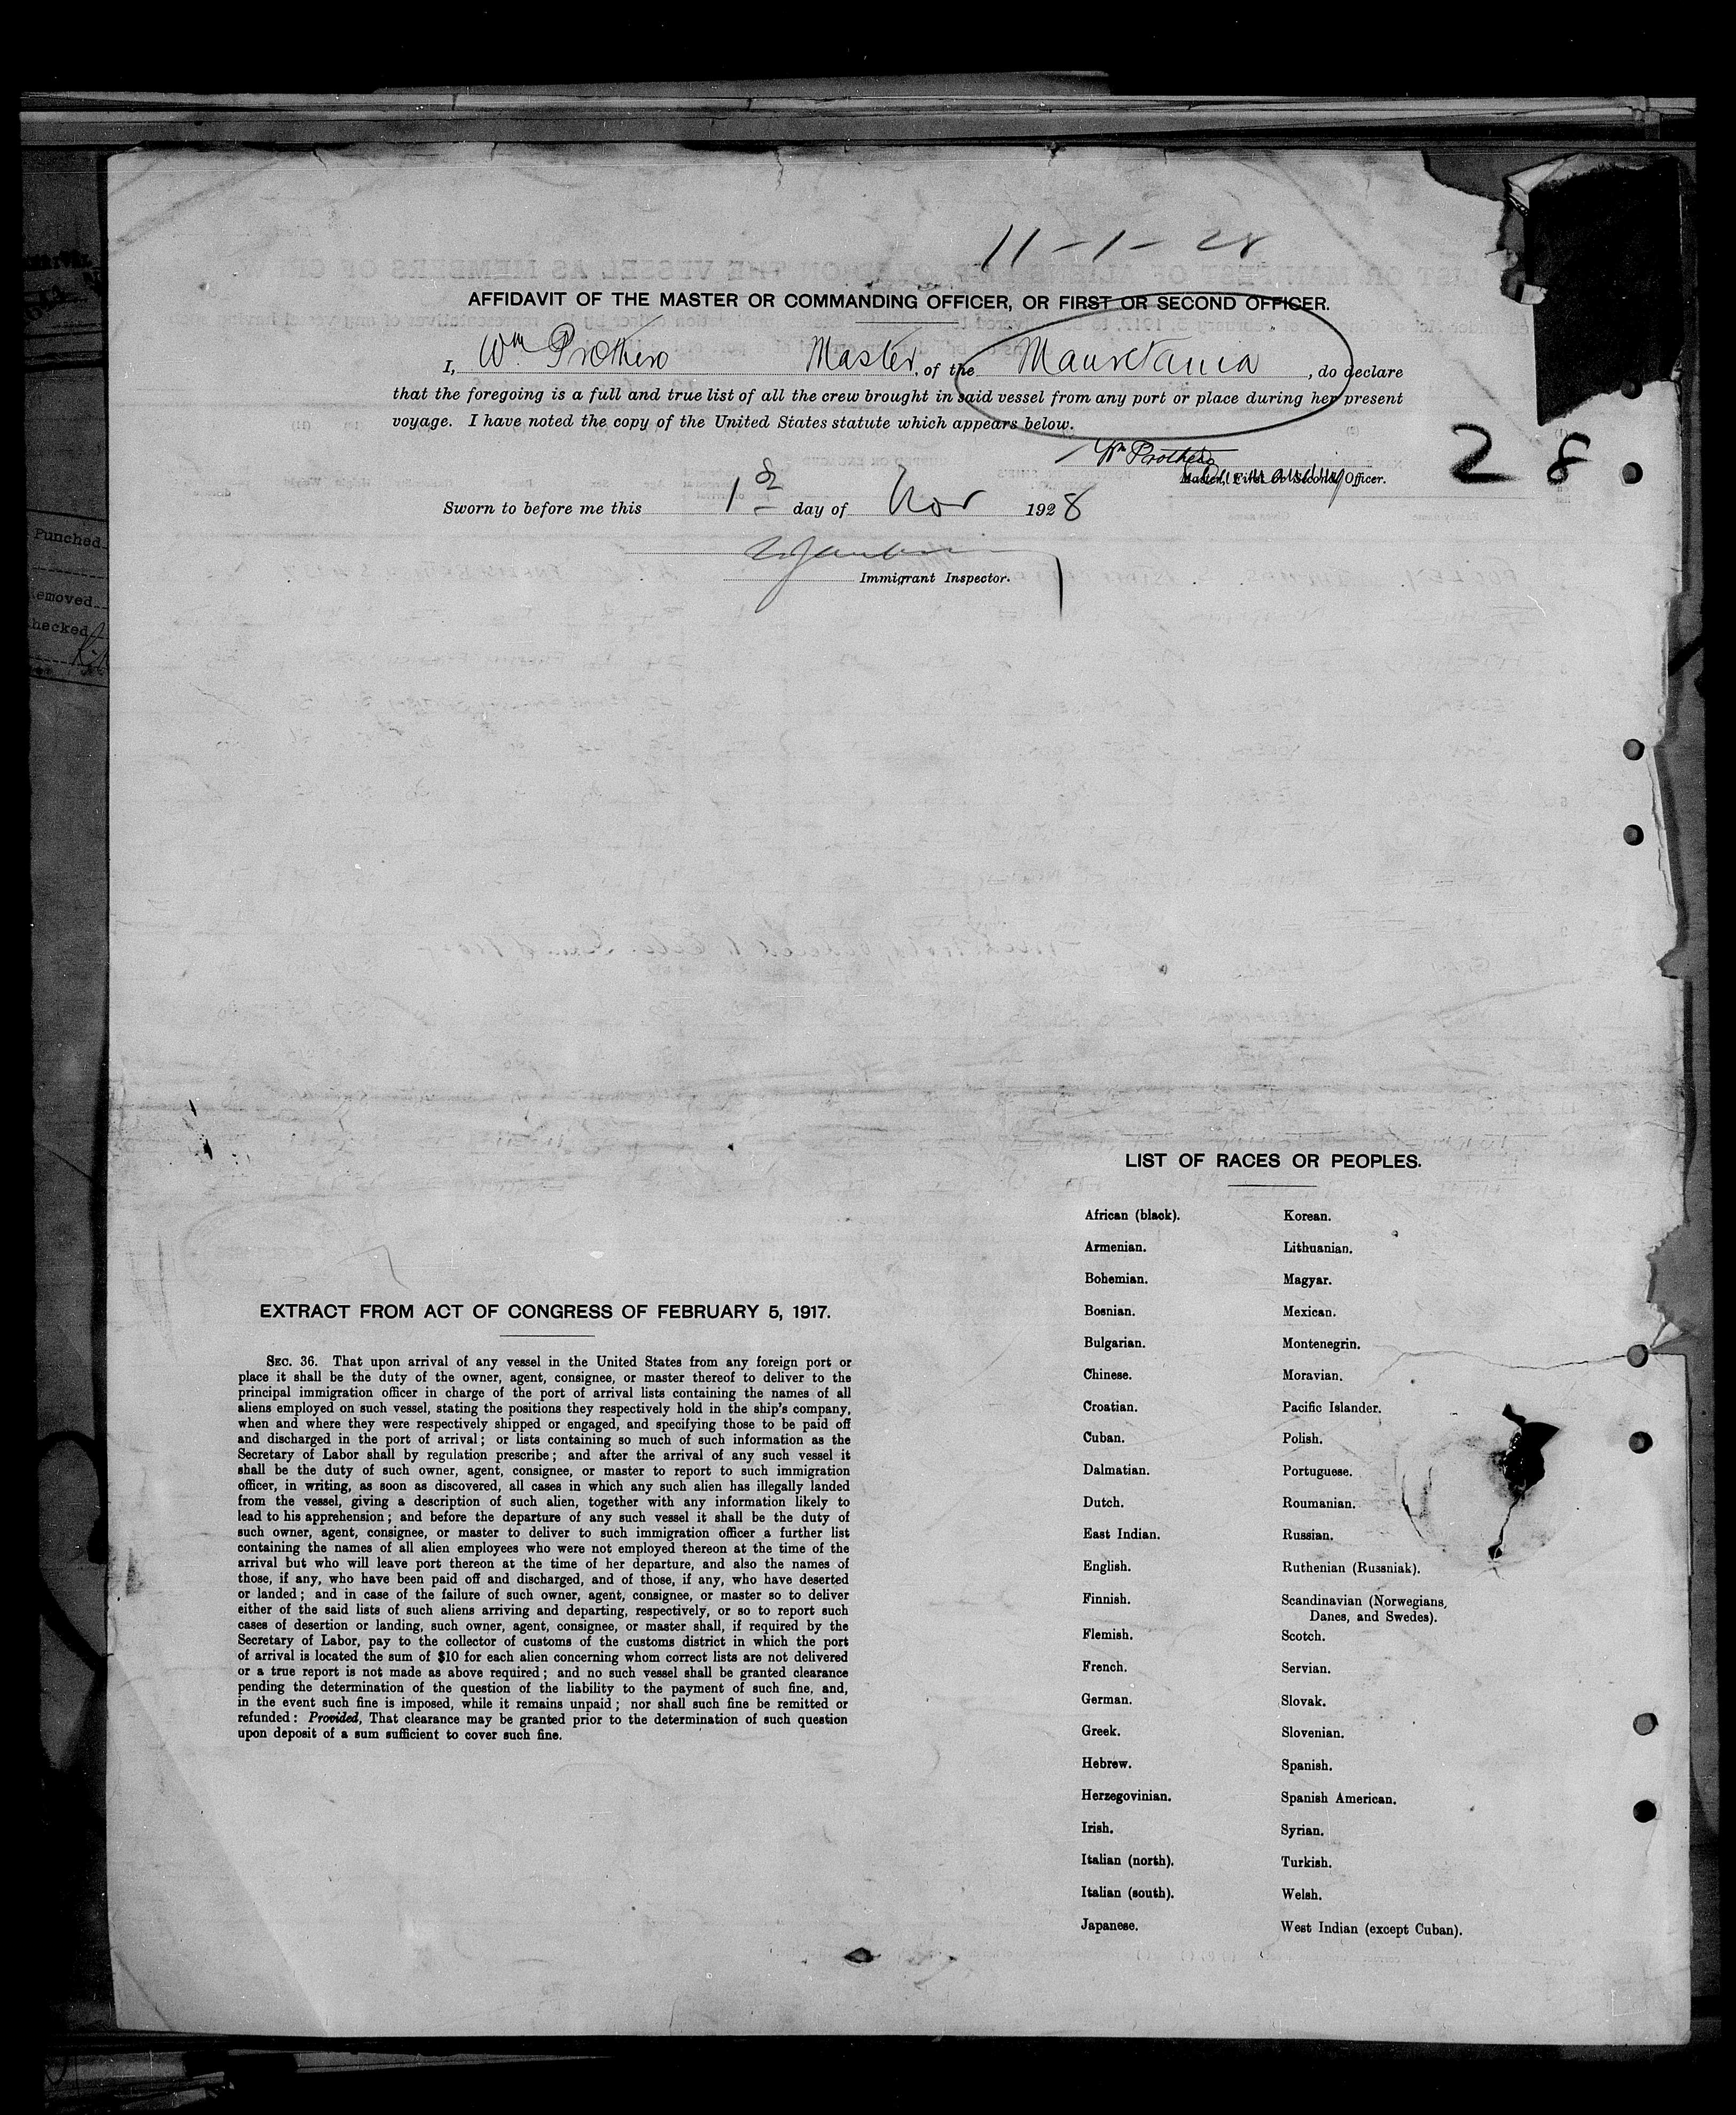 11-1-28
AFFIDAVIT OF THE MASTER OR COMMANDING OFFICER, OR FIRST OR SECOND OFFICER.
I, Wm Prothero Master, of the Mauretania, do declare
that the foregoing is a full and true list of all the crew brought in said vessel from any port or place during her present
voyage. I have noted the copy of the United States statute which appears below.
Wm Prothero
Master, First or Second Officer.
28
Sworn to before me this 1st day of Nov 1928
Immigrant Inspector.
Punched
Removed
Checked
LIST OF RACES OR PEOPLES.
African (black).
Armenian.
Bohemian.
Bosnian.
Bulgarian.
Chinese.
Croatian.
Cuban.
Dalmatian.
Dutch.
East Indian.
English.
Finnish.
Flemish.
French.
German.
Greek.
Hebrew.
Herzegovinian.
Irish.
Italian (north).
Italian (south).
Japanese.
Korean.
Lithuanian.
Magyar.
Mexican.
Montenegrin.
Moravian.
Pacific Islander.
Polish.
Portuguese.
Roumanian.
Russian.
Ruthenian (Russniak).
Scandinavian (Norwegians,
Danes, and Swedes).
Scotch.
Servian.
Slovak.
Slovenian.
Spanish.
Spanish American.
Syrian.
Turkish.
Welsh.
West Indian (except Cuban).
EXTRACT FROM ACT OF CONGRESS OF FEBRUARY 5, 1917.
SEC. 36. That upon arrival of any vessel in the United States from any foreign port or
place it shall be the duty of the owner, agent, consignee, or master thereof to deliver to the
principal immigration officer in charge of the port of arrival lists containing the names of all
aliens employed on such vessel, stating the positions they respectively hold in the ship's company,
when and where they were respectively shipped or engaged, and specifying those to be paid off
and discharged in the port of arrival; or lists containing so much of such information as the
Secretary of Labor shall by regulation prescribe; and after the arrival of any such vessel it
shall be the duty of such owner, agent, consignee, or master to report to such immigration
officer, in writing, as soon as discovered, all cases in which any such alien has illegally landed
from the vessel, giving a description of such alien, together with any information likely to
lead to his apprehension; and before the departure of any such vessel it shall be the duty of
such owner, agent, consignee, or master to deliver to such immigration officer a further list
containing the names of all alien employees who were not employed thereon at the time of the
arrival but who will leave port thereon at the time of her departure, and also the names of
those, if any, who have been paid off and discharged, and of those, if any, who have deserted
or landed; and in case of the failure of such owner, agent, consignee, or master so to deliver
either of the said lists of such aliens arriving and departing, respectively, or so to report such
cases of desertion or landing, such owner, agent, consignee, or master shall, if required by the
Secretary of Labor, pay to the collector of customs of the customs district in which the port
of arrival is located the sum of $10 for each alien concerning whom correct lists are not delivered
or a true report is not made as above required; and no such vessel shall be granted clearance
pending the determination of the question of the liability to the payment of such fine, and,
in the event such fine is imposed, while it remains unpaid; nor shall such fine be remitted or
refunded: Provided, That clearance may be granted prior to the determination of such question
upon deposit of a sum sufficient to cover such fine.